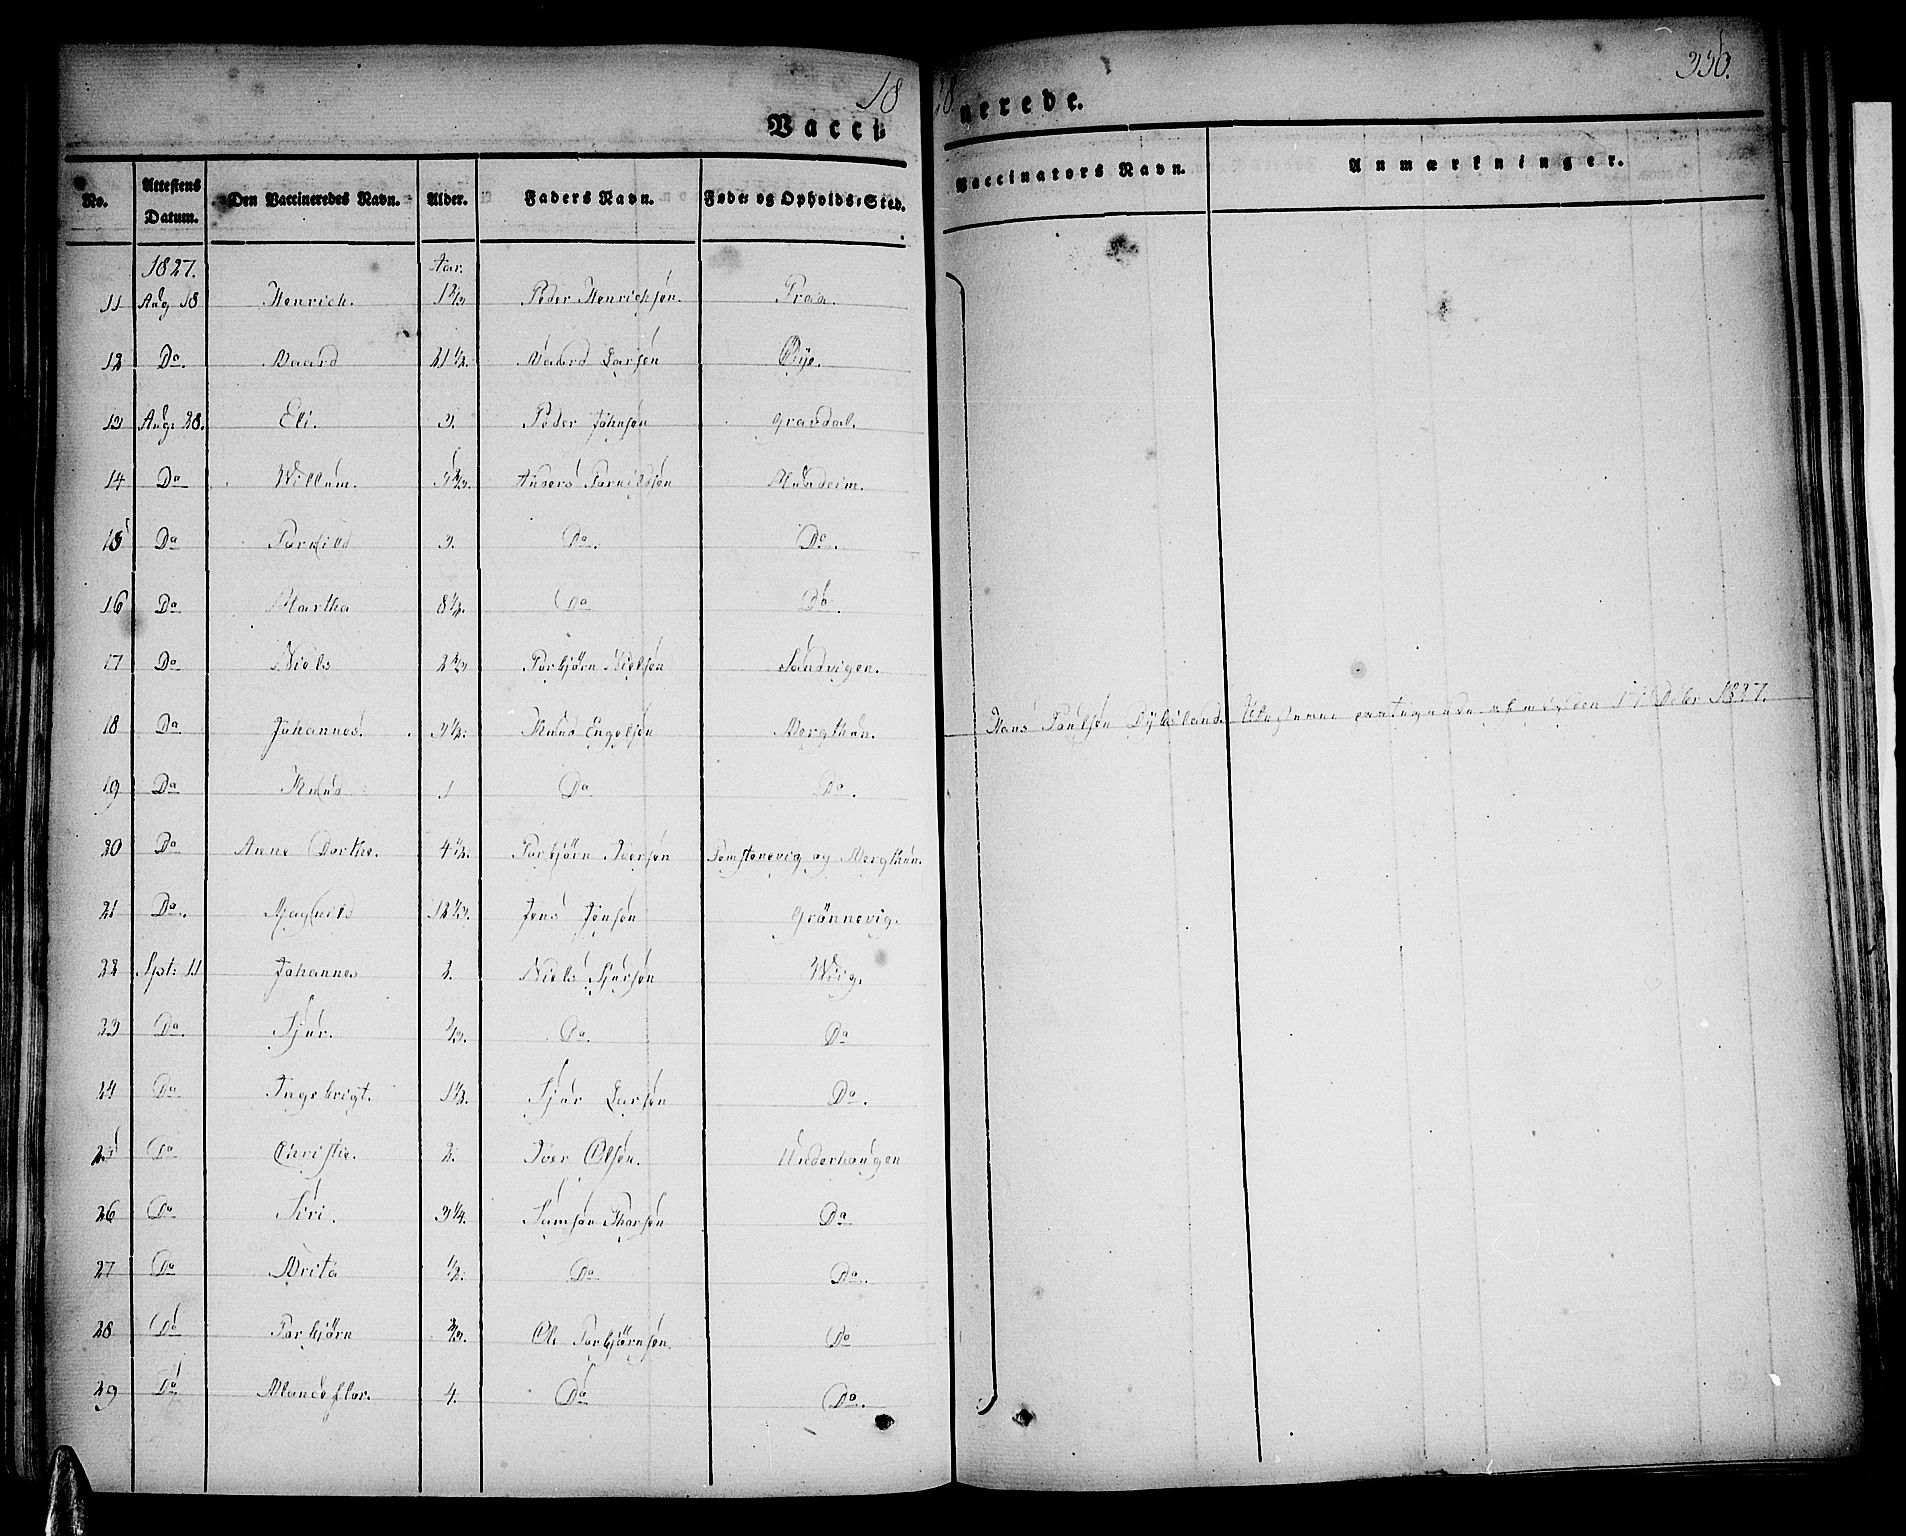 18
18
336.
Vacci-
nerede.
No. Attestens Datum. Den Vaccineredes Navn. Alder. Faders Navn. Føde- og Opholds-Sted. Vaccinators Navn. Anmærkninger.
1827. Aar.
11 Aug 18 Henrich. 1 2/3 Peder Henrichsen. Traa.
12 Do. Baard 21 1/2. Baard Larsen Øye.
13 Aug. 28. Eli. 3. Peder Johnsen Gravdal.
14 Do Willum. Anders Mundeim.
15 Do 3. Do. Do.
16 Do Martha 8 1/2. Do Do.
17 Do Niels Torbjørn Nielsen Sandvigen.
18 Do Johannes. 3 1/2. Knud Engelsen Bergthun.
Hans Poulsen
1827.
19 Do Knud 1 Do Do.
20 Do Anne Dorthe. 4 1/2. Torbjørn Iversen og Bergthun.
21 Do. Magnild 12 1/3. Jens Jensen Grønnevig.
22 Spt: 11 Johannes 2. Niels Sjursen Wiig.
23 Do. Sjur. Do. Do
24 Do Ingebrigt. 1 1/2. Sjur Larsen Do.
25 Do Christie. 2. Iver Olsen. Underhaugen
26 Do Siri. 3 1/4. Samson Thorsen Do
27 Do Brita 1/2. Do Do.
28 Do Torbjørn 2/3. Ole Torbjørnsen. Do
29 Do Blanceflor. 4. Do Do.